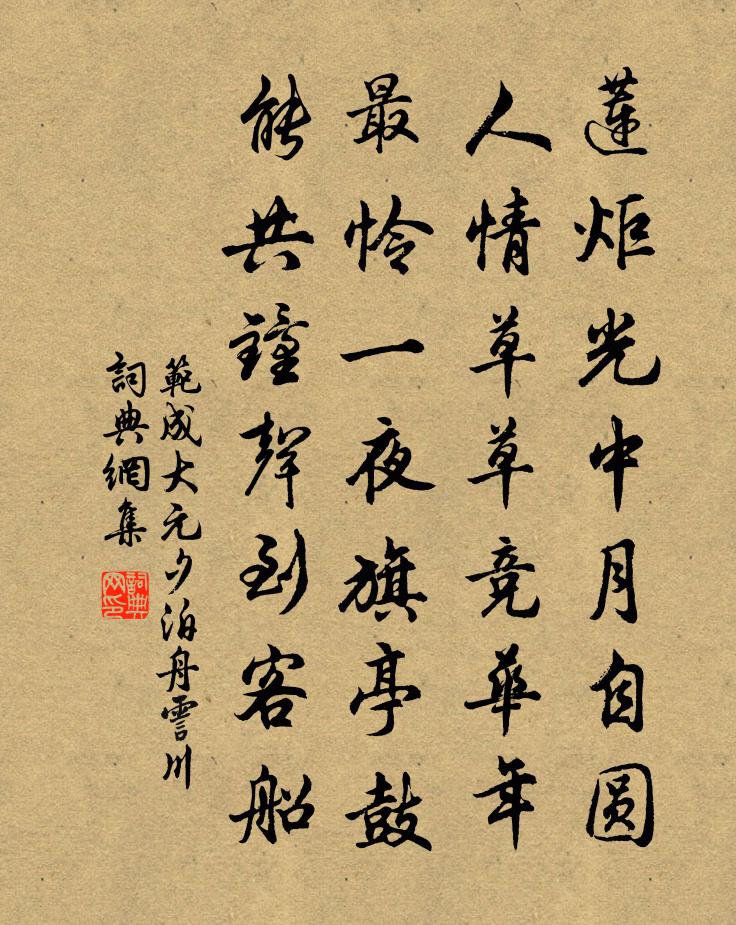 蓮炬光中月自圆
人情草草競華年
最怜一夜旗亭鼓
能共鐘聲到客船
範成大元夕泊舟霅川
詞典網集
詞典网印